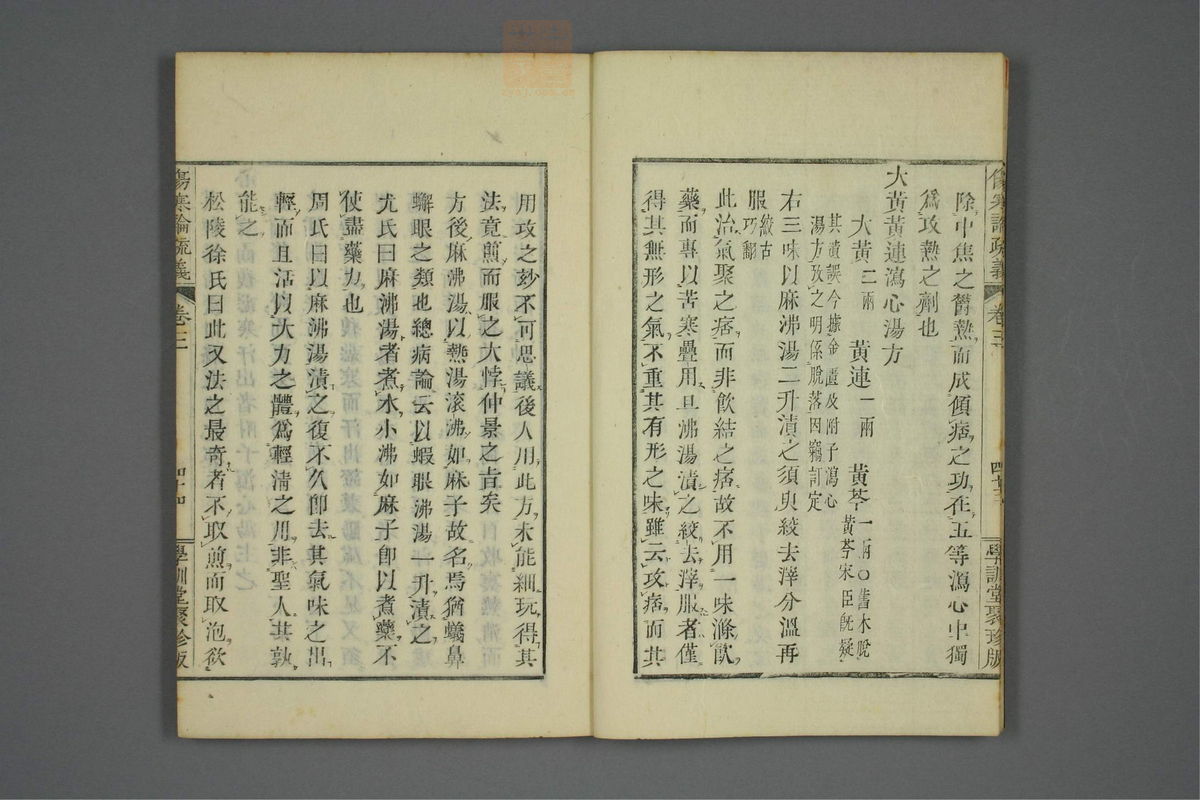 傷寒論疏義 卷三 四十三 學訓堂聚珍版
除中焦之鬱熱而成傾痞之功在五等瀉心中獨
爲攻熱之劑也
大黃黃連瀉心湯方
大黃二兩 黃連一兩 黃芩一兩○舊本脫黃芩宋臣旣疑
其遺誤今據金匱及附子瀉心湯方攷之明係脫落因竊訂定
右三味以麻沸湯二升漬之須臾絞去滓分溫再
服絞古巧翻
此治氣聚之痞而非飮結之痞故不用一味滌飮
藥而專以苦寒疊用且沸湯漬之絞去滓服者僅
得其無形之氣不重其有形之味雖云攻痞而其
用攻之妙不可思議後人用此方未能細玩得其
法竟煎而服之大悖仲景之旨矣
方後麻沸湯以熱湯滾沸如麻子故名焉猶蟻鼻
蠏眼之類也總病論云以蝦眼沸湯一升漬之
尤氏曰麻沸湯者煮水小沸如麻子卽以煮藥不
使盡藥力也
周氏曰以麻沸湯漬之復不久卽去其氣味之出
輕而且活以大力之體爲輕淸之用非聖人其孰
能之
松陵徐氏曰此又法之最奇者不取煎而取泡欲
傷寒論疏義 卷三 四十四 學訓堂聚珍版